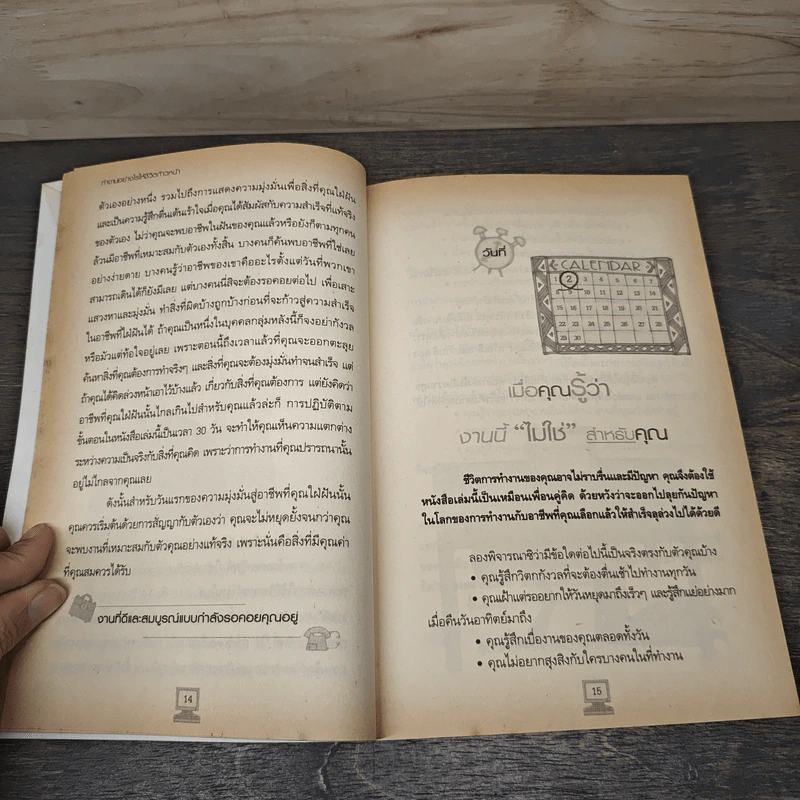 ทำงานอย่างไรให้ชีวิตก้าวหน้า
ตัวเองอย่างหนึ่ง รวมไปถึงการแสดงความมุ่งมั่นเพื่อสิ่งที่คุณใฝ่ฝัน
และเป็นความรู้สึกตื่นเต้นเร้าใจเมื่อคุณได้สัมผัสกับความสำเร็จที่แท้จริง
ของตัวเอง ไม่ว่าคุณจะพบอาชีพในฝันของคุณแล้วหรือยังก็ตามทุกคน
ล้วนมีอาชีพที่เหมาะสมกับตัวเองทั้งสิ้น บางคนก็ค้นพบอาชีพที่ใช่เลย
อย่างง่ายดาย บางคนรู้ว่าอาชีพของเขาคืออะไรตั้งแต่วันที่พวกเขา
สามารถเดินได้ก็ยังมีเลย แต่บางคนนี่สิจะต้องรอคอยต่อไป เพื่อเสาะ
แสวงหาและมุ่งมั่น ทำสิ่งที่ผิดบ้างถูกบ้างก่อนที่จะก้าวสู่ความสำเร็จ
ในอาชีพที่ใฝ่ฝันได้ ถ้าคุณเป็นหนึ่งในบุคคลกลุ่มหลังนี้ก็จงอย่ากังวล
หรือมัวแต่ท้อใจอยู่เลย เพราะตอนนี้ถึงเวลาแล้วที่คุณจะออกตะลุย
ค้นหาสิ่งที่คุณต้องการทำจริงๆ และสิ่งที่คุณจะต้องมุ่งมั่นทำจนสำเร็จ แต่
ถ้าคุณได้คิดล่วงหน้าเอาไว้บ้างแล้ว เกี่ยวกับสิ่งที่คุณต้องการ แต่ยังคิดว่า
อาชีพที่คุณใฝ่ฝันนั้นไกลเกินไปสำหรับคุณแล้วล่ะก็ การปฏิบัติตาม
ขั้นตอนในหนังสือเล่มนี้เป็นเวลา 30 วัน จะทำให้คุณเห็นความแตกต่าง
ระหว่างความเป็นจริงกับสิ่งที่คุณคิด เพราะว่าการทำงานที่คุณปรารถนานั้น
อยู่ไม่ไกลจากคุณเลย
ดังนั้นสำหรับวันแรกของความมุ่งมั่นสู่อาชีพที่คุณใฝ่ฝันนั้น
คุณควรเริ่มต้นด้วยการสัญญากับตัวเองว่า คุณจะไม่หยุดยั้งจนกว่าคุณ
จะพบงานที่เหมาะสมกับตัวคุณอย่างแท้จริง เพราะนั่นคือสิ่งที่มีคุณค่า
ที่คุณสมควรได้รับ
งานที่ดีและสมบูรณ์แบบกำลังรอคอยคุณอยู่
14
วันที่
CALENDAR
1 2 3 4 5 6 7
8 9 10 11 12 13 14
15 16 17 18 19 20 21
22 23 24 25 26 27 28
29 30
เมื่อคุณรู้ว่า
งานนี้ “ไม่ใช่” สำหรับคุณ
ชีวิตการทำงานของคุณอาจไม่ราบรื่นและมีปัญหา คุณจึงต้องใช้
หนังสือเล่มนี้เป็นเหมือนเพื่อนคู่คิด ด้วยหวังว่าจะออกไปลุยกันปัญหา
ในโลกของการทำงานกับอาชีพที่คุณเลือกแล้วให้สำเร็จลุล่วงไปได้ด้วยดี
ลองพิจารณาซิว่ามีข้อใดต่อไปนี้เป็นจริงตรงกับตัวคุณบ้าง
• คุณรู้สึกวิตกกังวลที่จะต้องตื่นเช้าไปทำงานทุกวัน
• คุณเฝ้าแต่รออยากให้วันหยุดมาถึงเร็วๆ และรู้สึกแย่อย่างมาก
เมื่อคืนวันอาทิตย์มาถึง
• คุณรู้สึกเบื่องานของคุณตลอดทั้งวัน
• คุณไม่อยากสุงสิงกับใครบางคนในที่ทำงาน
15